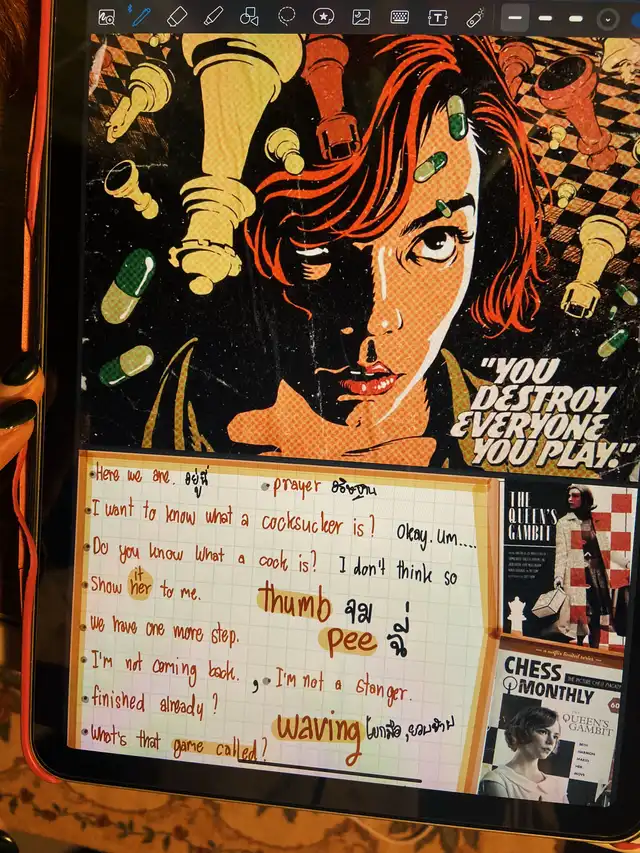 "YOU
DESTROY
EVERYONE
YOU PLAY."
Here we are. อยู่นี่
prayer อธิษฐาน
I want to know what a cocksucker is? Okay. Um....
Do you know what a cock is? I don't think so
it
Show her to me.
thumb จม
we have one more step.
pee ฉี่
I'm not coming back.
, I'm not a stanger.
finished already?
waving โบกมือ,
What's that game called?
THE
QUEEN'S
GAMBIT
CHESS
MONTHLY
THE PICTURE CHESS MAGAZINE
60
QUEEN'S
GAMBIT